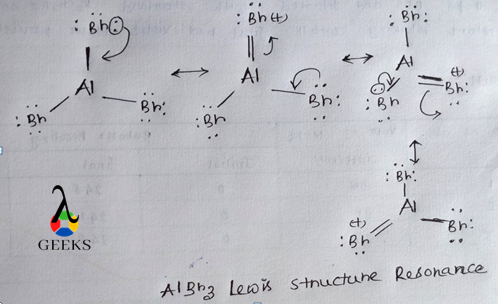 Br
Al
Br Br
Br (+)
Al
Br Br
Br
Al (+)
Br Br
Br
(+) Al
Br Br
λ
GEEKS
AlBr3 Lewis Structure Resonance